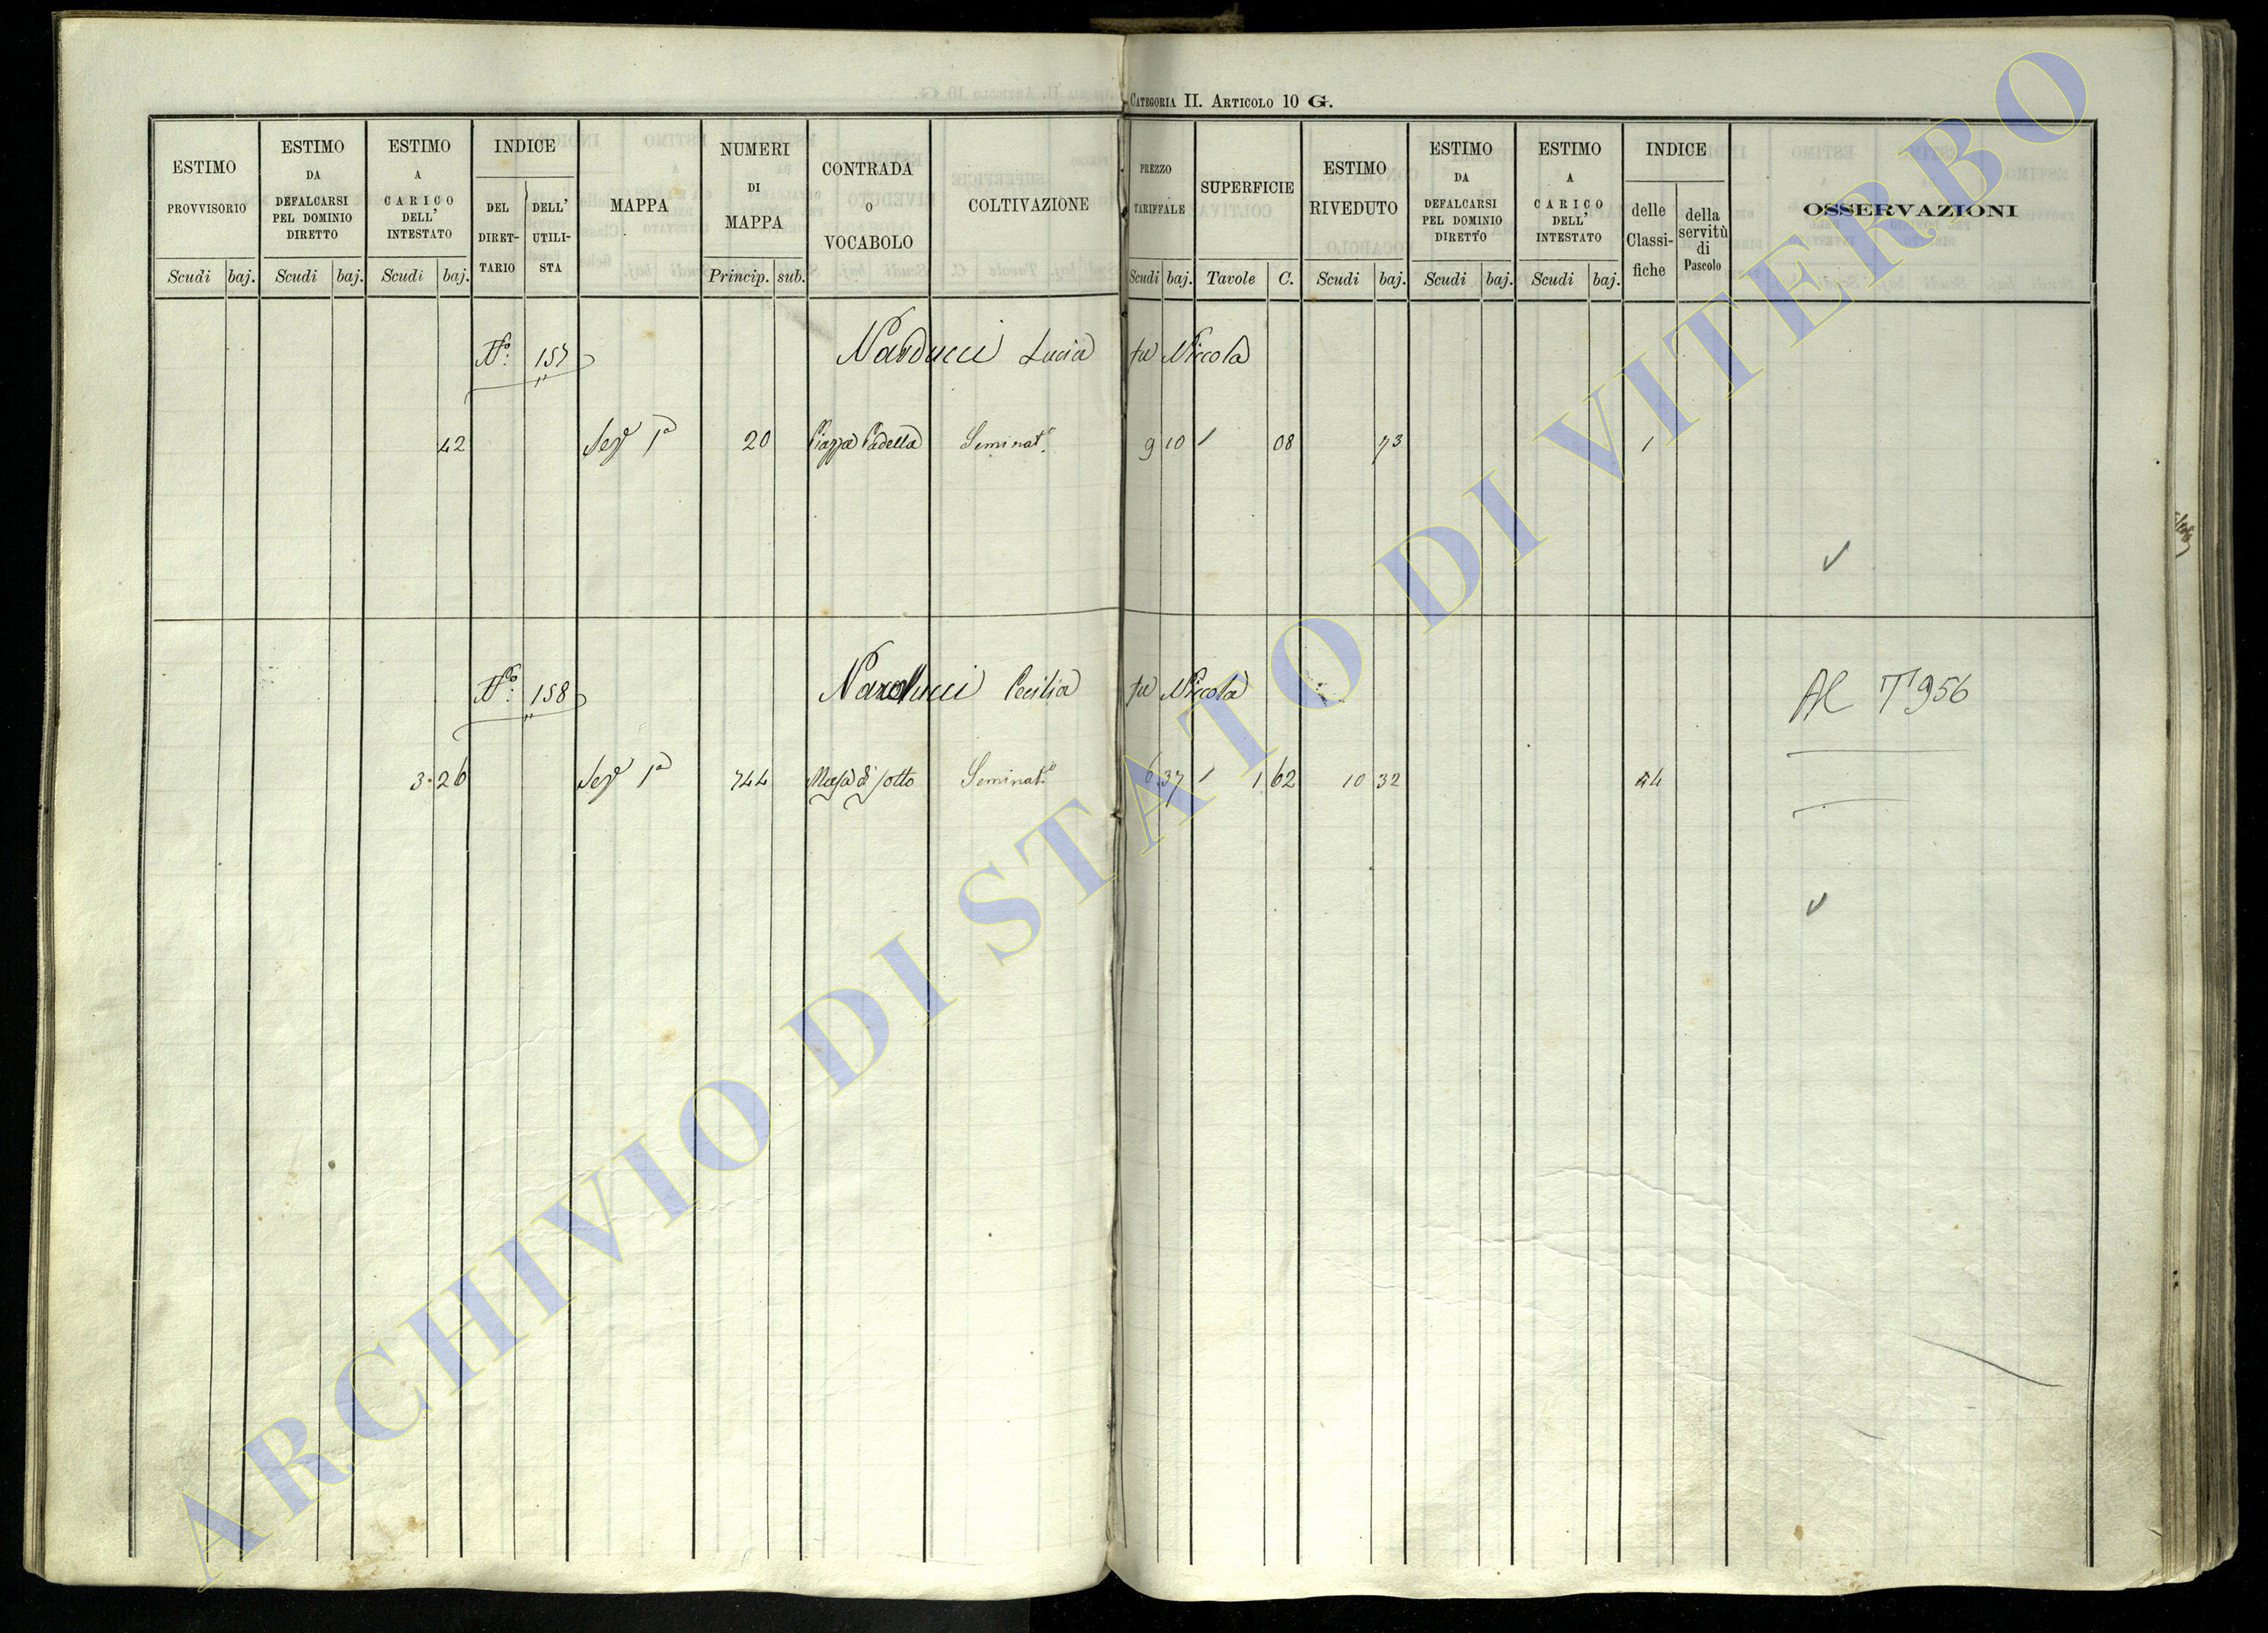 CATEGORIA II. ARTICOLO 10 G.
ESTIMO PROVVISORIO
ESTIMO DA DEFALCARSI PEL DOMINIO DIRETTO
ESTIMO A CARICO DELL' INTESTATO
INDICE
DEL DIRET-TARIO
DELL' UTILI-STA
MAPPA
NUMERI DI MAPPA
CONTRADA O VOCABOLO
COLTIVAZIONE
PREZZO TARIFFALE
SUPERFICIE
ESTIMO RIVEDUTO
ESTIMO DA DEFALCARSI PEL DOMINIO DIRETTO
ESTIMO A CARICO DELL' INTESTATO
INDICE
delle Classi-fiche
della servitù di Pascolo
OSSERVAZIONI
Scudi baj. Scudi baj. Scudi baj. Princip. sub. Scudi baj. Tavole C. Scudi baj. Scudi baj. Scudi baj.
N.º 157 Narducci Lucia fu Niccola
42 Sezᵉ 1ª 20 Piazza Padella Seminatº 9 10 08 73 1
N.º 158 Narducci Cecilia fu Niccola
Al T 956
3 26 Sezᵉ 1ª 744 di sotto Seminatº 6 37 1 62 10 32 44
ARCHIVIO DI STATO DI VITERBO